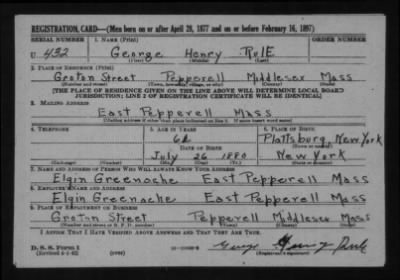 REGISTRATION CARD—(Men born on or after April 28, 1877 and on or before February 16, 1897)
SERIAL NUMBER 1. NAME (Print) ORDER NUMBER
U 432 George Henry RulE
(First) (Middle) (Last)
2. PLACE OF RESIDENCE (Print)
Groton Street Pepperell Middlesex Mass
(Number and street) (Town, township, village, or city) (County) (State)
[THE PLACE OF RESIDENCE GIVEN ON THE LINE ABOVE WILL DETERMINE LOCAL BOARD
JURISDICTION; LINE 2 OF REGISTRATION CERTIFICATE WILL BE IDENTICAL]
3. MAILING ADDRESS
East Pepperell Mass
(Mailing address if other than place indicated on line 2. If same insert word same)
4. TELEPHONE 5. AGE IN YEARS 6. PLACE OF BIRTH
Plattsburg, New York
DATE OF BIRTH (Town or county)
July 26 1880 New York
(Exchange) (Number) (Mo.) (Day) (Yr.) (State or country)
7. NAME AND ADDRESS OF PERSON WHO WILL ALWAYS KNOW YOUR ADDRESS
Elgin Greenache East Pepperell Mass
8. EMPLOYER'S NAME AND ADDRESS
Elgin Greenache East Pepperell Mass
9. PLACE OF EMPLOYMENT OR BUSINESS
Groton Street Pepperell Middlesex Mass
(Number and street or R. F. D. number) (Town) (County) (State)
I AFFIRM THAT I HAVE VERIFIED ABOVE ANSWERS AND THAT THEY ARE TRUE.
D. S. S. Form 1 George Henry Rule
(Revised 4-1-42) (over)